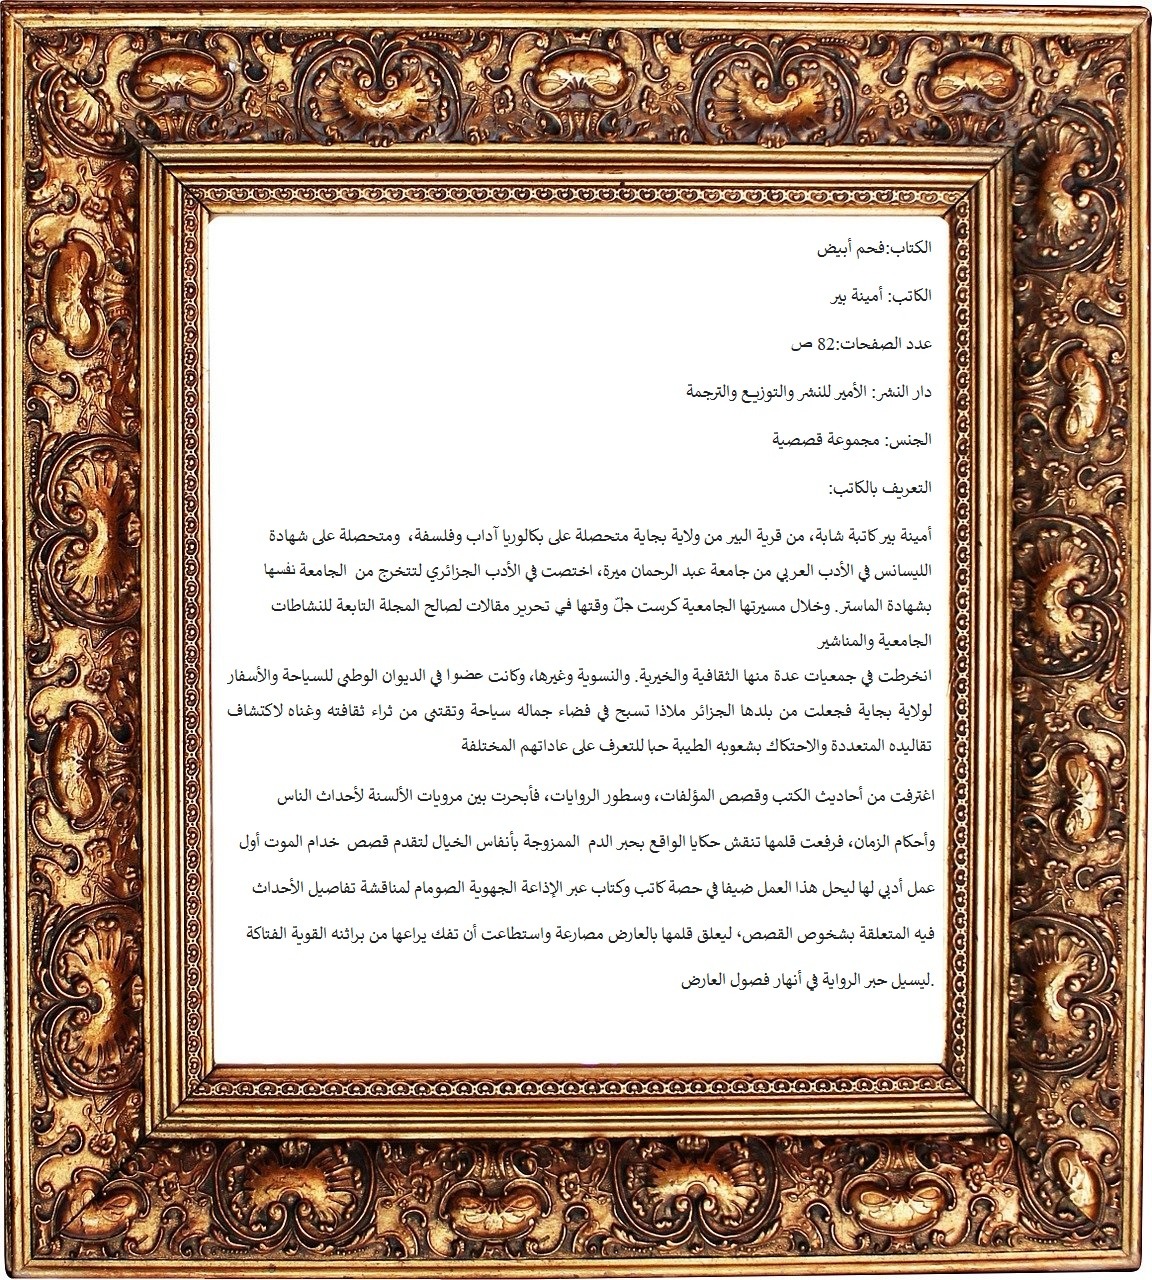 الكتاب:فحم أبيض
الكاتب: أمينة بير
عدد الصفحات:82 ص
دار النشر: الأمير للنشر والتوزيع والترجمة
الجنس: مجموعة قصصية
التعريف بالكاتب:
أمينة بير كاتبة شابة، من قرية البير من ولاية بجاية متحصلة على بكالوريا آداب وفلسفة، ومتحصلة على شهادة
الليسانس في الأدب العربي من جامعة عبد الرحمان ميرة، اختصت في الأدب الجزائري لتتخرج من الجامعة نفسها
بشهادة الماستر. وخلال مسيرتها الجامعية كرست جلّ وقتها في تحرير مقالات لصالح المجلة التابعة للنشاطات
الجامعية والمناشير
انخرطت في جمعيات عدة منها الثقافية والخيرية. والنسوية وغيرها، وكانت عضوا في الديوان الوطني للسياحة والأسفار
لولاية بجاية فجعلت من بلدها الجزائر ملاذا تسبح في فضاء جماله سياحة وتقتني من ثراء ثقافته وغناه لاكتشاف
تقاليده المتعددة والاحتكاك بشعوبه الطيبة حبا للتعرف على عاداتهم المختلفة
اغترفت من أحاديث الكتب وقصص المؤلفات، وسطور الروايات، فأبحرت بين مرويات الألسنة لأحداث الناس
وأحكام الزمان، فرفعت قلمها تنقش حكايا الواقع بحبر الدم الممزوجة بأنفاس الخيال لتقدم قصص خدام الموت أول
عمل أدبي لها ليحل هذا العمل ضيفا في حصة كاتب وكتاب عبر الإذاعة الجهوية الصومام لمناقشة تفاصيل الأحداث
فيه المتعلقة بشخوص القصص، ليعلق قلمها بالعارض مصارعة واستطاعت أن تفك يراعها من براثنه القوية الفتاكة
.ليسيل حبر الرواية في أنهار فصول العارض